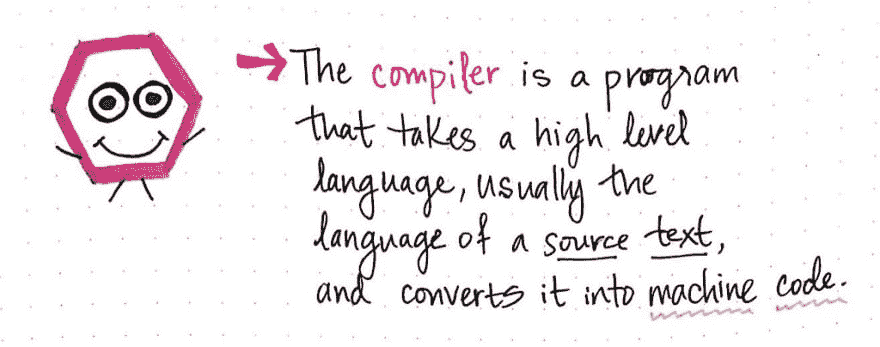 The compiler is a program
that takes a high level
language, usually the
language of a source text,
and converts it into machine code.